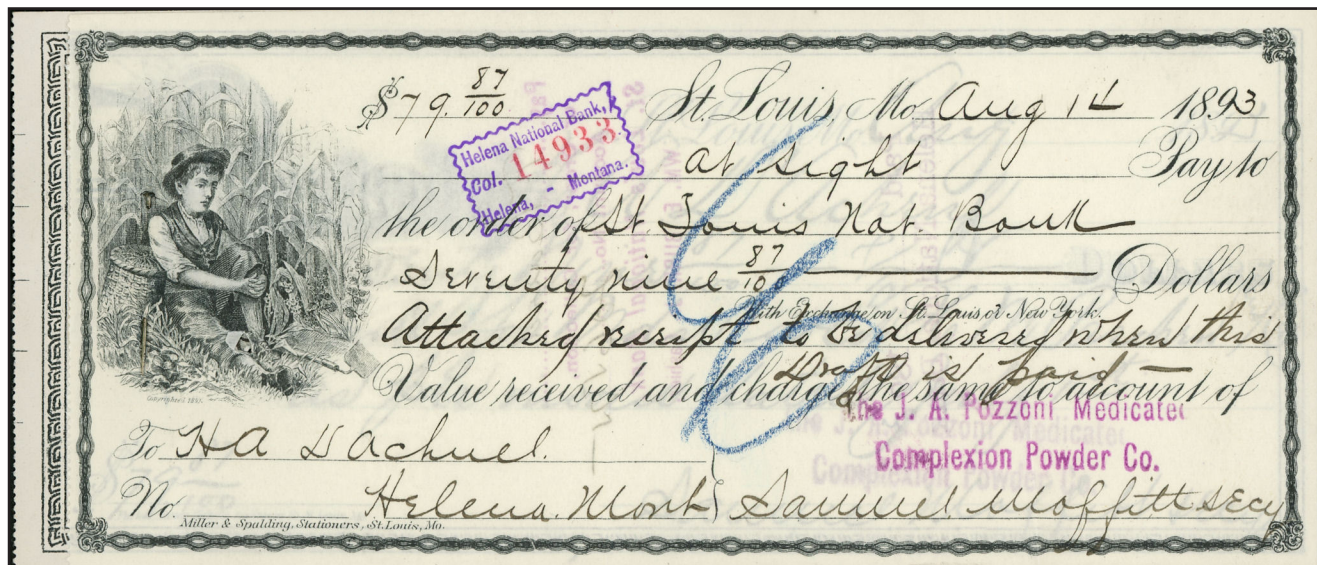 $79. 87/100 St. Louis, Mo. Aug 14 1893
Helena National Bank,
Col. 14933
Helena, - Montana.
At Sight Pay to
the order of St. Louis Nat. Bank
Seventy nine 87/100 Dollars
With Exchange on St. Louis or New York.
Attached receipt to be delivered when this
Draft is paid —
Value received and charge the same to account of
The J. A. Pozzoni Medicated
Complexion Powder Co.
To H A
No. Helena. Mont Samuel Moffitt Secy
Miller & Spalding, Stationers, St. Louis, Mo.